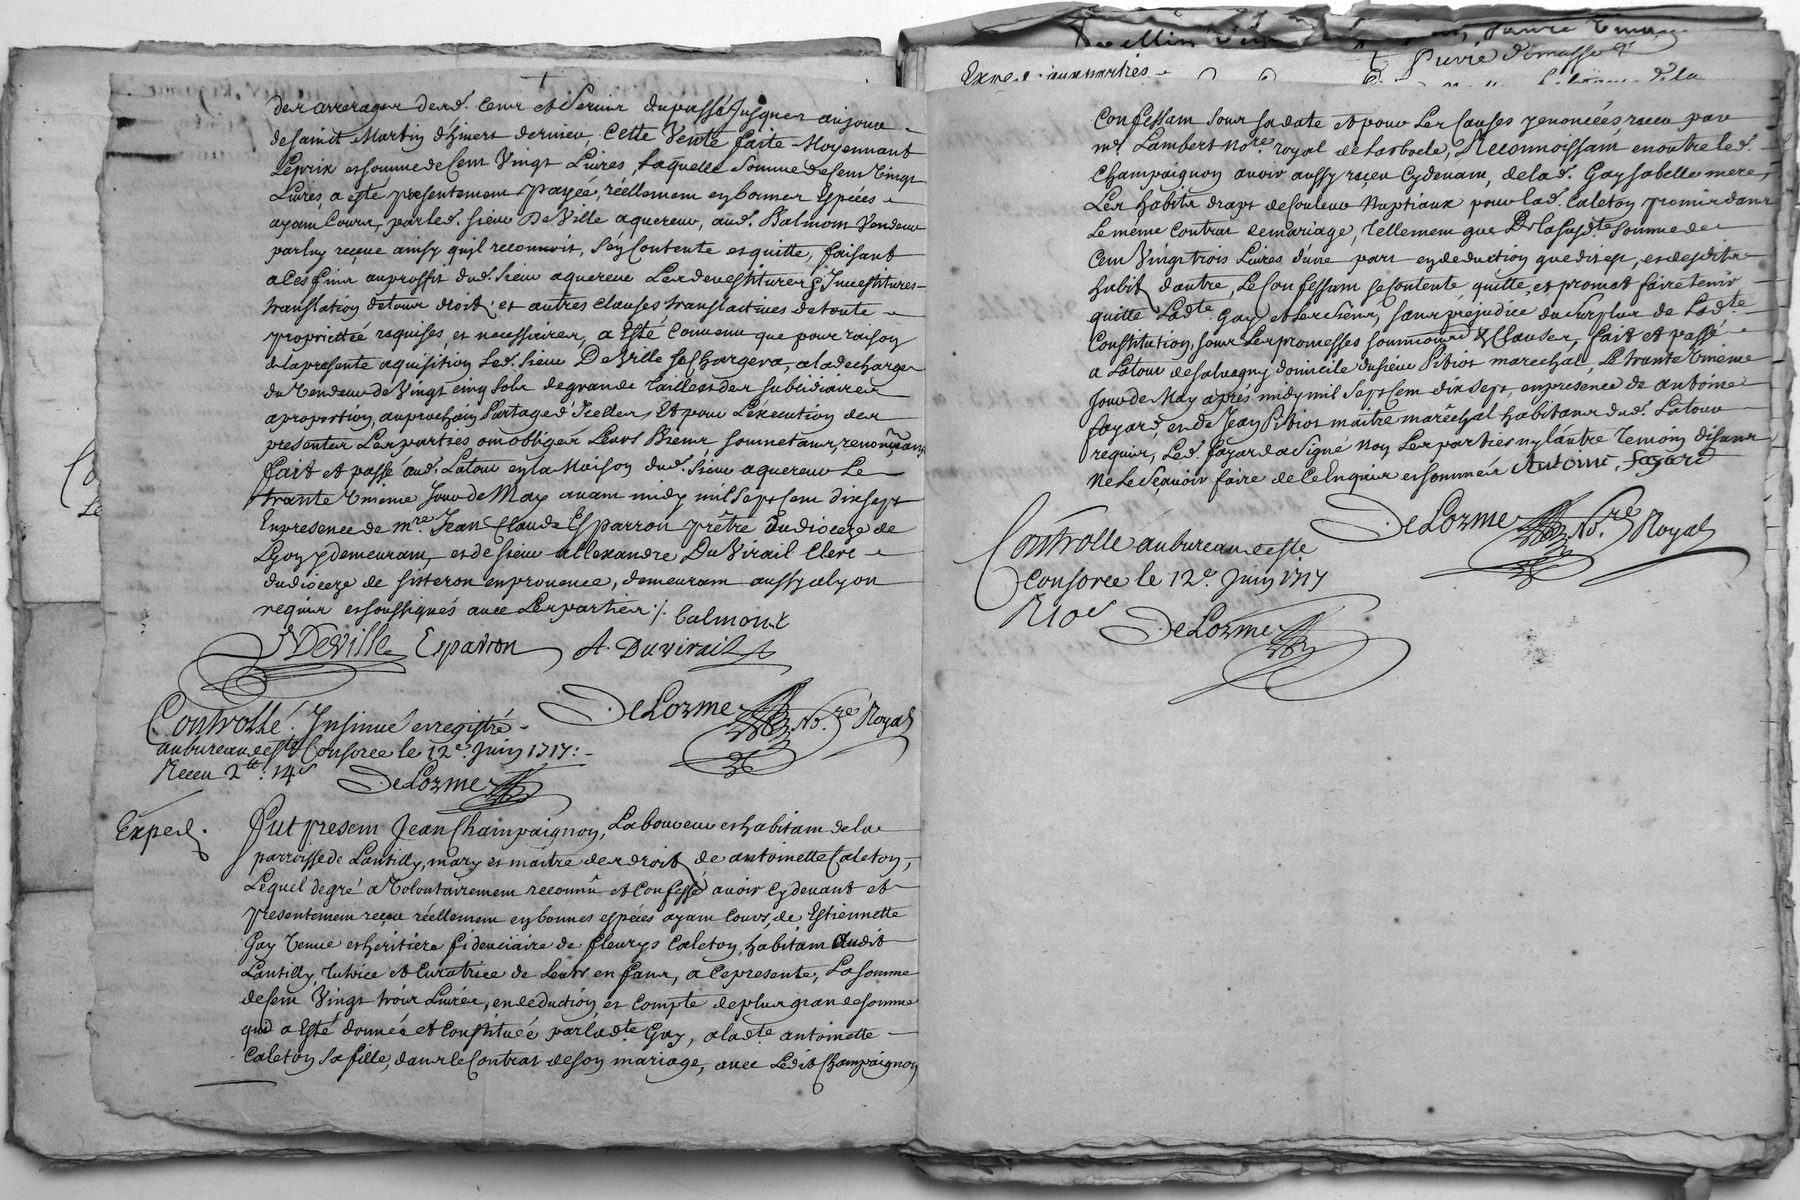 des arrerages desd. cens et servis dupassé Jusques aujour
desainct Martin d'hivert dernier, Cette Vente faite Moyennant
Leprix et somme de Cent Vingt Livres, Laquelle Somme de Cent Vingt
Livres, a esté presentement payée, réellement en bonnes Espéces
ayant Cours, par led. sieur DeVille aquereur, aud. Balmont Vendeur
par luy receue ainsy quil reconnoit, s'en Contente et quitte, faisant
a Ces fins au proffit dud. sieur aquereur Les devestitures, Investitures
translation de tous droits et autres clauses translatives de toute
proprietté requises, et necessaires, a Esté Convenu que pour raison
delapresente aquisition Led. sieur DeVille se Chargera, aladecharge
du Vendeur de Vingt cinq sols de grande Taille et des subsidiaires
aproportion, auprochain Partage d'Icelles, Et pour L'execution des
presentes Les parties ont obligés Leurs Biens, soumettans, renonceans
fait et passé aud. Latour en la Maison dud. sieur aquereur Le
trante Unieme Jour de May avant midy mil Sept cent dix sept
En presence de mre. Jean Claude Esparron prêtre du dioceze de
Lyon y demeurant, et de sieur allexandre DuVirail Clerc
du dioceze de sisteron en provence, demeurant aussy a lyon
requis et soussignés avec Les parties ·/· balmont
J DeVille Esparron A. Duvirail
DeLorme Nore. Royal
Controllé. Insinué enregistré
au bureau de ste Consorce le 12e. Juin 1717: -
Receu 2 tt. 14 s
DeLorme
Exped.
Fut present Jean Champaignon, Laboureur et habitant de la
parroisse de Lantilly, mary et maitre des droits de antoinette Caleton,
Lequel de gré a Volontairement reconnû et Confessé avoir cy devant et
presentement reçeu réellement en bonnes espéces ayant Cours, de Estiennette
Gay Veuve et heritiere fidenciaire de fleurys Caleton, habitant audit
Lantilly, tutrice et Curatrice de Leurs enfans, a Ce presente, La somme
de Cent Vingt trois Livres, en deduction, et Compte de plus grande somme
qui a Esté donnée et Constituée par lade. Gay, a lade. antoinette
Caleton sa fille, dans le Contrat de son mariage, avec Ledit Champaignon
Exped. aux parties
Confessant sous sa date et pour Les Causes y enoncées receu par
me. Lambert Nore. royal de Larbrele, Reconnoissant en outre led.
Champaignon avoir aussy reçeu cy devant, de lad. Gay sa belle mere,
Les habits draps de Couleur Nuptiaux pour lad. Caleton promis dans
Le même Contrat de mariage, tellement que De la susdte somme de
Cent Vingt trois Livres d'une part en deduction que dit est, et desdits
habits d'autre, Le Confessant se Contente quitte, et promet faire tenir
quitte Ladte. Gay et les siens, sans préjudice du surplus de Ladte.
Constitution, sous Les promesses soumissions & Clauses, fait et passé
a Latour de salvagny domicile du sieur Pitiot marechal, Le trante Unième
Jour de May aprés midy mil Sept Cent dix sept, en presence de antoine
fayard, et de Jean Pitiot maitre maréchal habitans dud. Latour
requis, Led. fayard a signé non Les parties ny l'autre Temoin disans
Ne Le Sçavoir faire de Ce Enquis et sommés Antoine, Fayard
DeLorme Nore. Royal
Controllé au bureau de ste
Consorce le 12e. Juin 1717
R 10 s
DeLorme